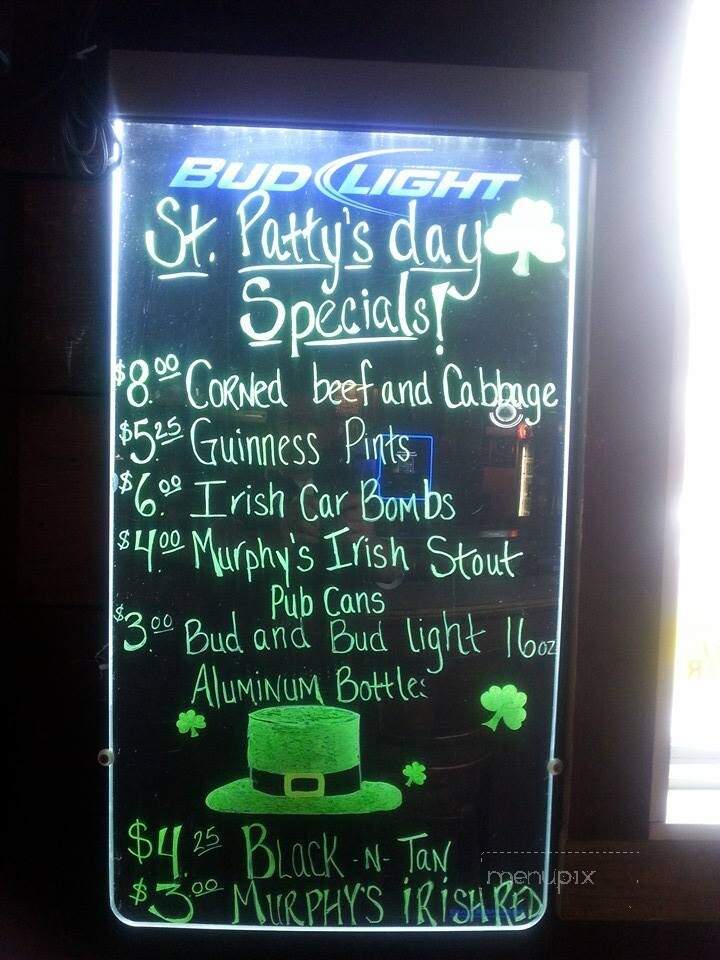 BUD LIGHT
St. Patty's day
Specials!
$8.00 Corned beef and Cabbage
$5.25 Guinness Pints
$6.00 Irish Car Bombs
$4.00 Murphy's Irish Stout
Pub Cans
$3.00 Bud and Bud light 16oz
Aluminum Bottles
$4.25 Black-N-Tan
$3.00 Murphy's iRish Red
menupix